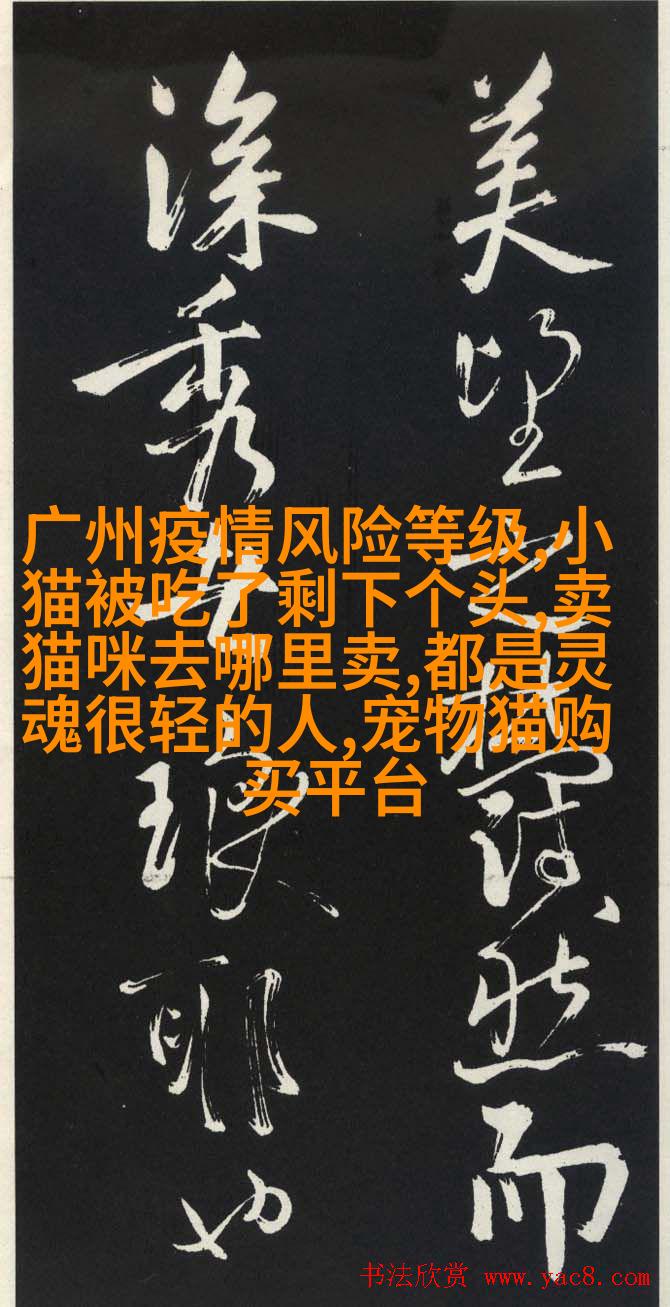 美望之蔚然而
深秀者琅耶也
广州疫情风险等级,小
猫被吃了剩下个头,卖
猫咪去哪里卖,都是灵
魂很轻的人,宠物猫购
买平台
书法欣赏 www.yac8.com